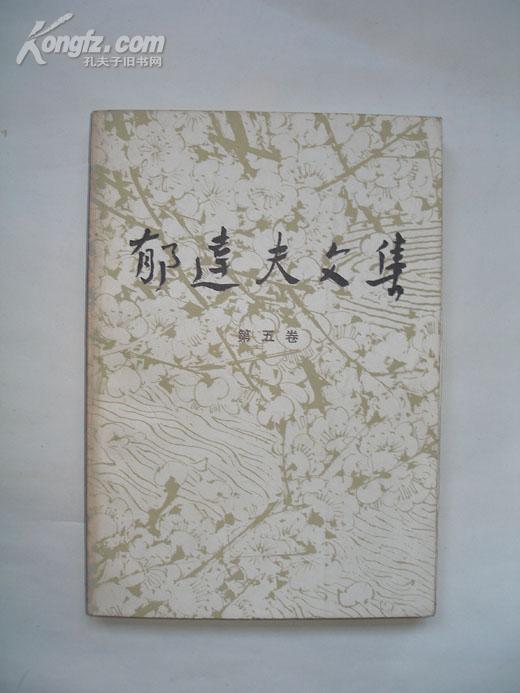 Kongfz.com
孔夫子旧书网
郁達夫文集
第五卷